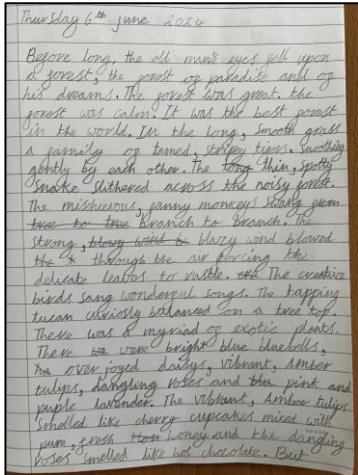 Thursday 6th june 2024
Before long, the old man's eyes fell upon
a forest, the forest of paradise and of
his dreams. The forest was great. the
forest was calm. It was the best forest
in the world. In the long, smooth grass
a family of tamed, stripey tigers. soothing
gently by each other. The long thin, spotty
snake slithered across the noisy forest.
The mischievous, funny monkeys swang from
tree to tree branch to branch. The
strong, blowy wind blazy wind blowed
through the air forcing the
delicate leaves to rustle. The creative
birds sang wonderful songs. The tapping
tucan curiosly balanced on a tree top.
There was a myriad of exotic plants.
There were bright blue bluebells,
over joyed daisys, vibrant, Amber
tulips, dangling roses and pink and
puple lavander. The vibrant, Amber tulips
smelled like cherry cupcakes mixed with
pure, fresh honey and the dangling
roses smelled like hot chocolate. But